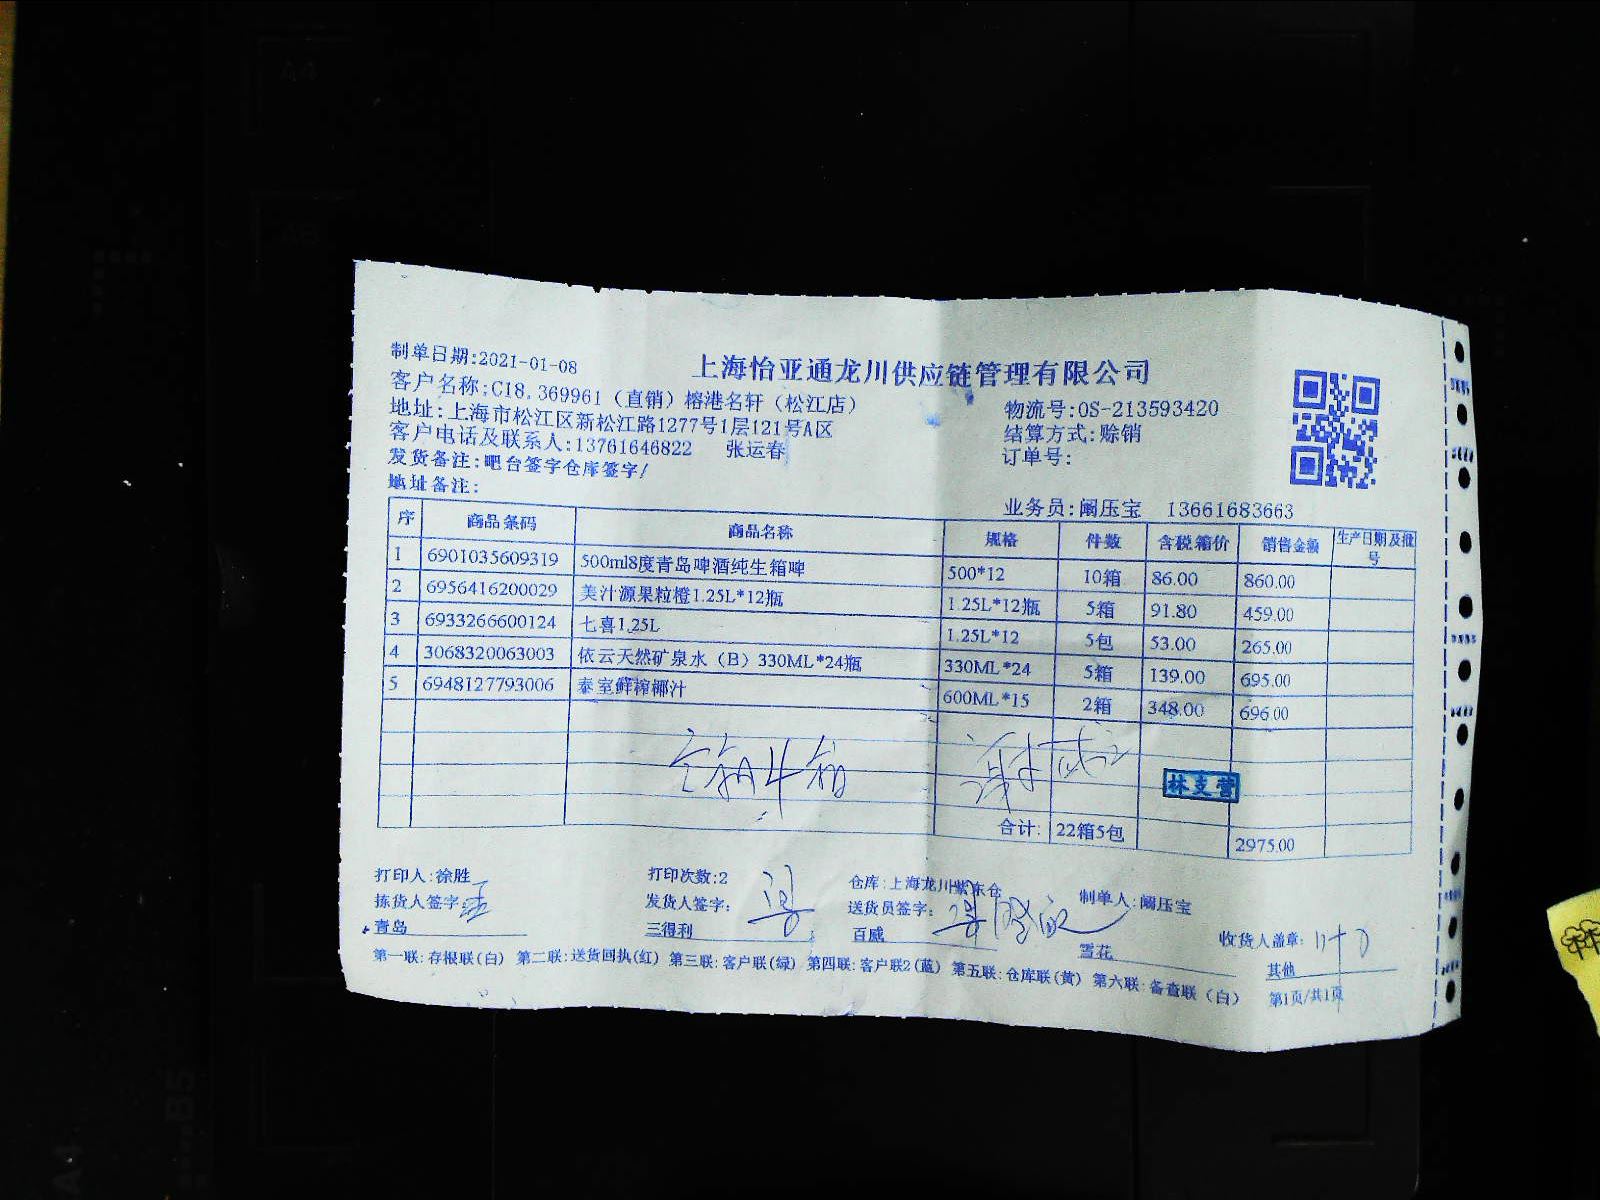 上海怡亚通龙川供应链管理有限公司
制单日期:2021-01-08
客户名称:C18.369961（直销）榕港名轩（松江店）
物流号:OS-213593420
地址:上海市松江区新松江路1277号1层121号A区
结算方式:赊销
客户电话及联系人:13761646822 张运春
订单号:
发货备注:吧台签字仓库签字/
地址备注:
业务员:阚压宝 13661683663
序 商品条码 商品名称 规格 件数 含税箱价 销售金额 生产日期及批号
1 6901035609319 500ml8度青岛啤酒纯生箱啤 500*12 10箱 86.00 860.00
2 6956416200029 美汁源果粒橙1.25L*12瓶 1.25L*12瓶 5箱 91.80 459.00
3 6933266600124 七喜1.25L 1.25L*12 5包 53.00 265.00
4 3068320063003 依云天然矿泉水（B）330ML*24瓶 330ML*24 5箱 139.00 695.00
5 6948127793006 泰室鲜榨椰汁 600ML*15 2箱 348.00 696.00
林支营
合计: 22箱5包 2975.00
打印人:徐胜 打印次数:2 仓库:上海龙川紫东仓 制单人:阚压宝
拣货人签字: 发货人签字: 送货员签字: 收货人盖章:
青岛 三得利 百威 雪花 其他
第一联:存根联(白) 第二联:送货回执(红) 第三联:客户联(绿) 第四联:客户联2(蓝) 第五联:仓库联(黄) 第六联:备查联（白） 第1页/共1页
A4
B5